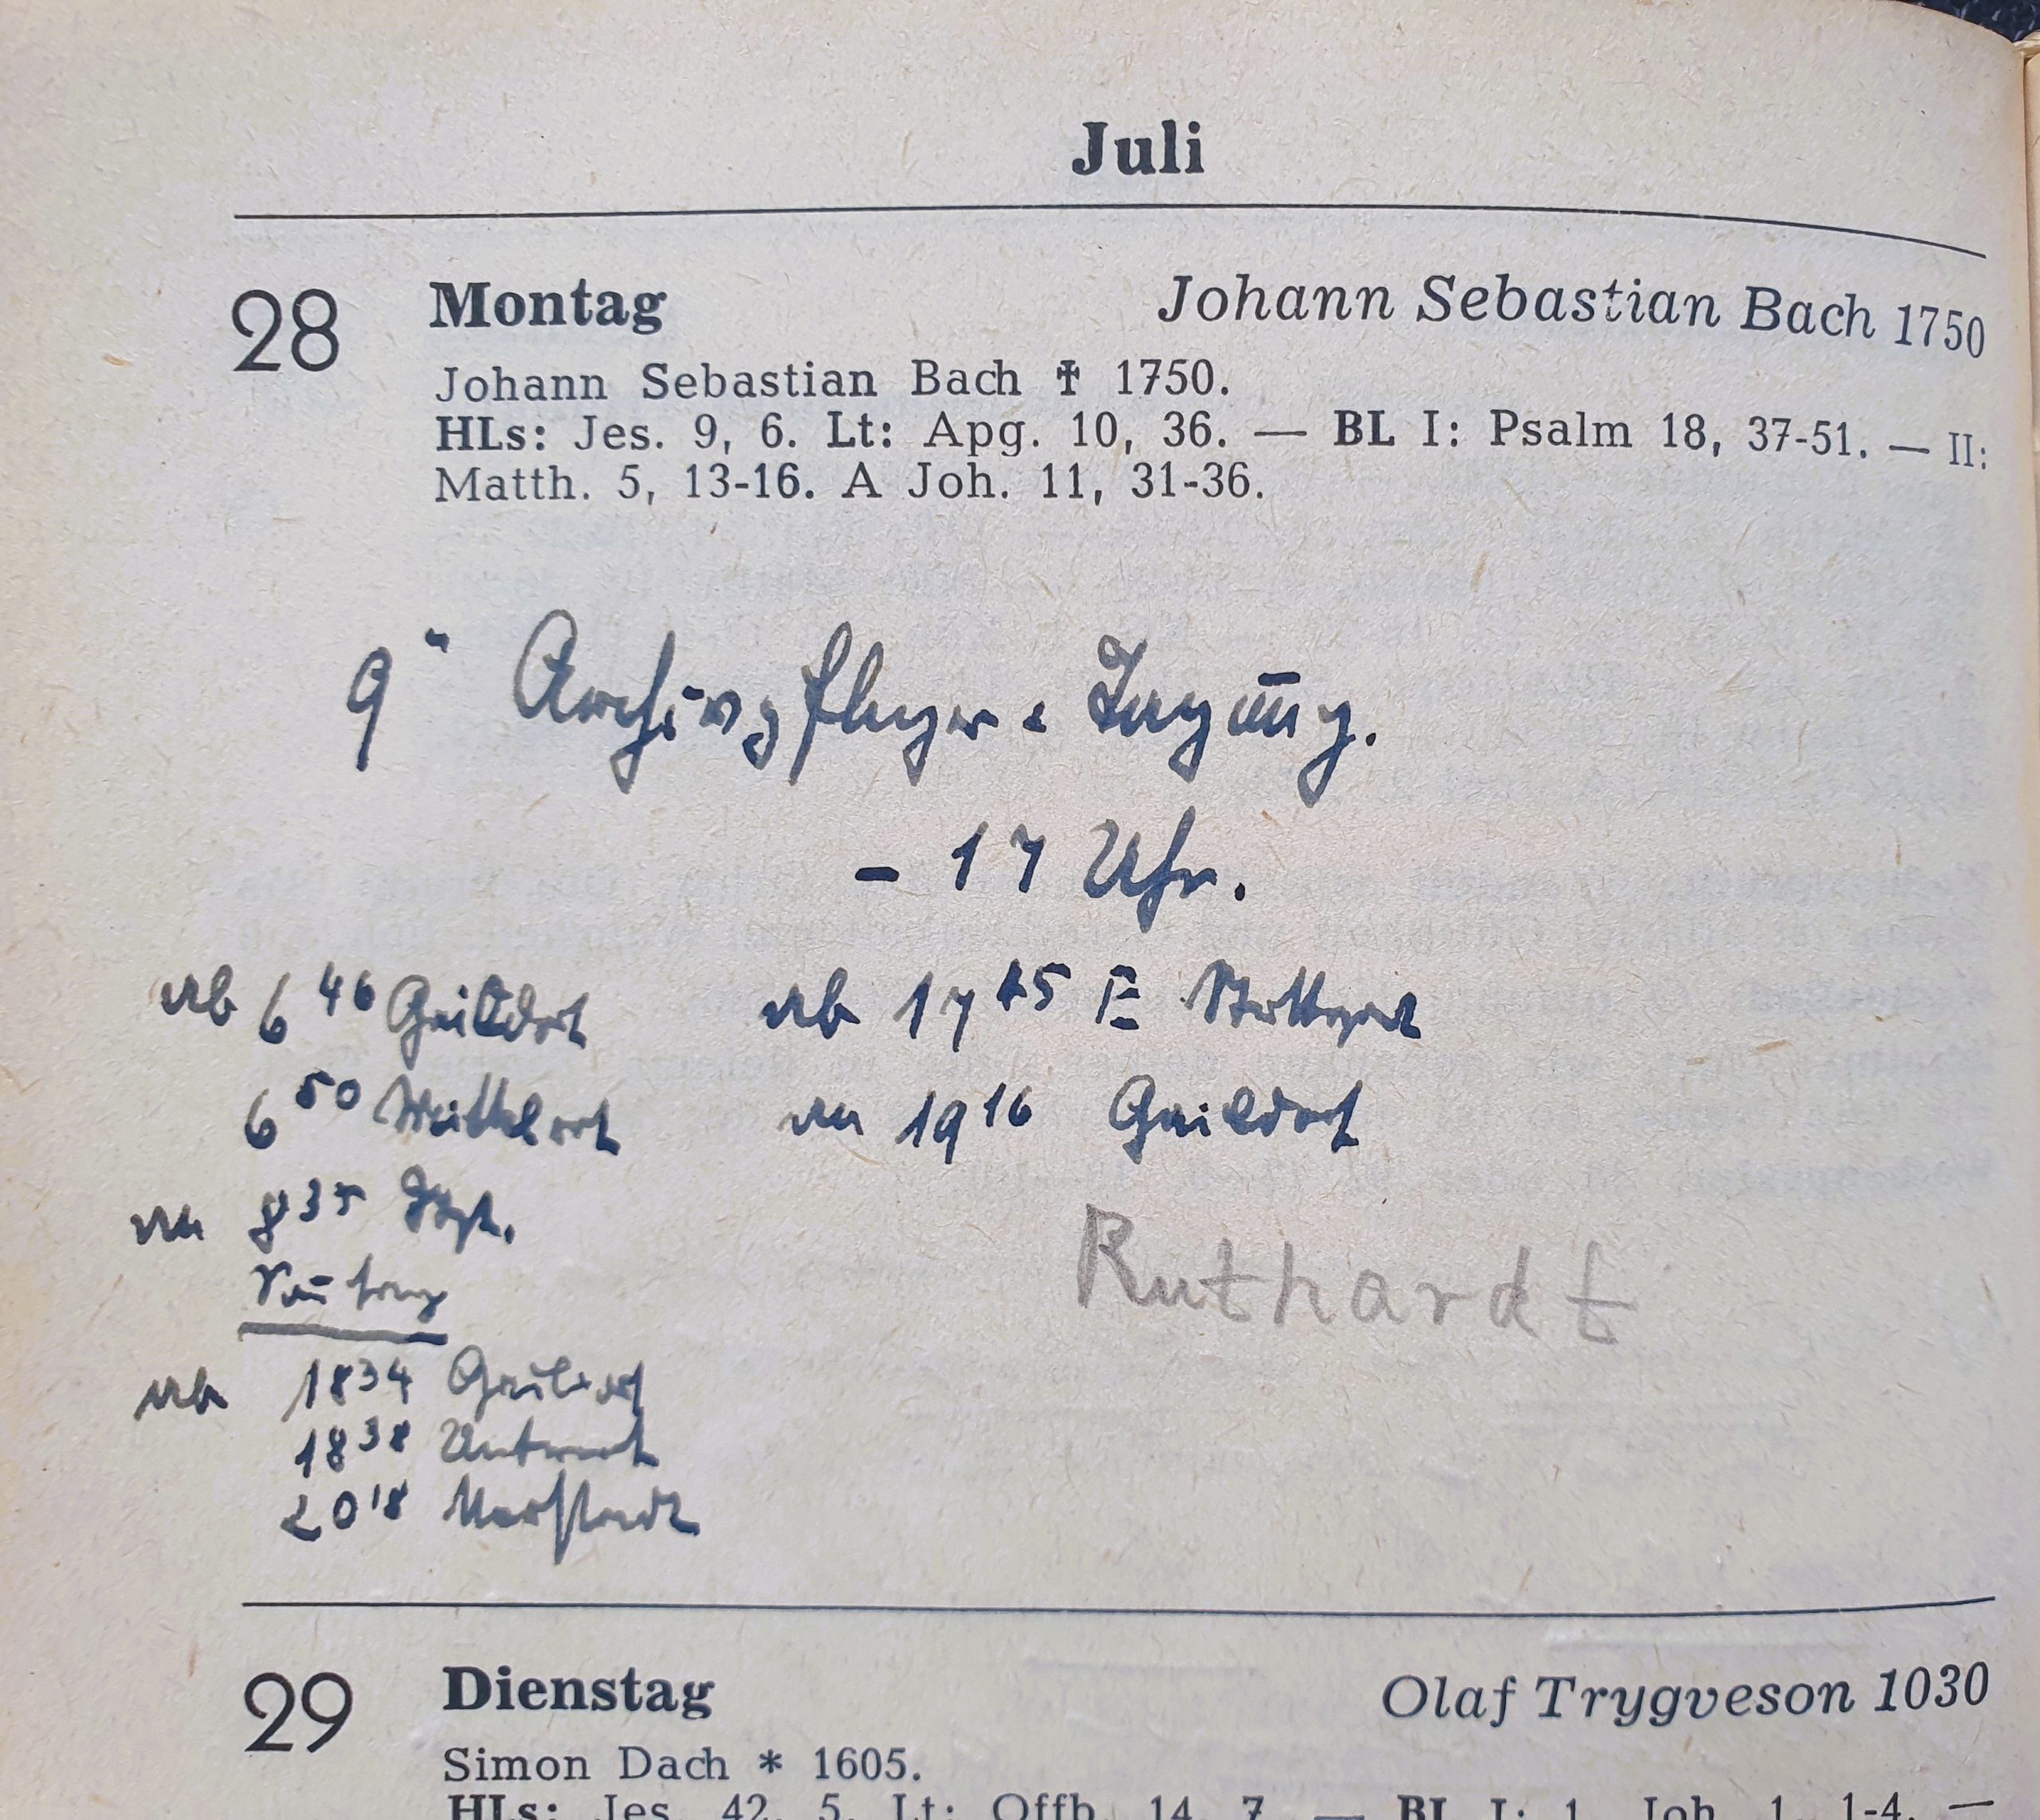 Juli
28 Montag Johann Sebastian Bach 1750
Johann Sebastian Bach ✝ 1750.
HLs: Jes. 9, 6. Lt: Apg. 10, 36. — BL I: Psalm 18, 37-51. — II:
Matth. 5, 13-16. A Joh. 11, 31-36.
9" Archivpfleger-Tagung.
- 17 Uhr.
ab 6 46 Gaildorf ab 17 45 E Stuttgart
6 50 an 19 16 Gaildorf
an 8 35 Stgt.
Ruthardt
ab 18 34 Gaildorf
18 38
20 18
29 Dienstag Olaf Trygveson 1030
Simon Dach * 1605.
HLs: Jes. 42, 5. Lt: Offb. 14, 7. — BL I: 1. Joh. 1, 1-4. —